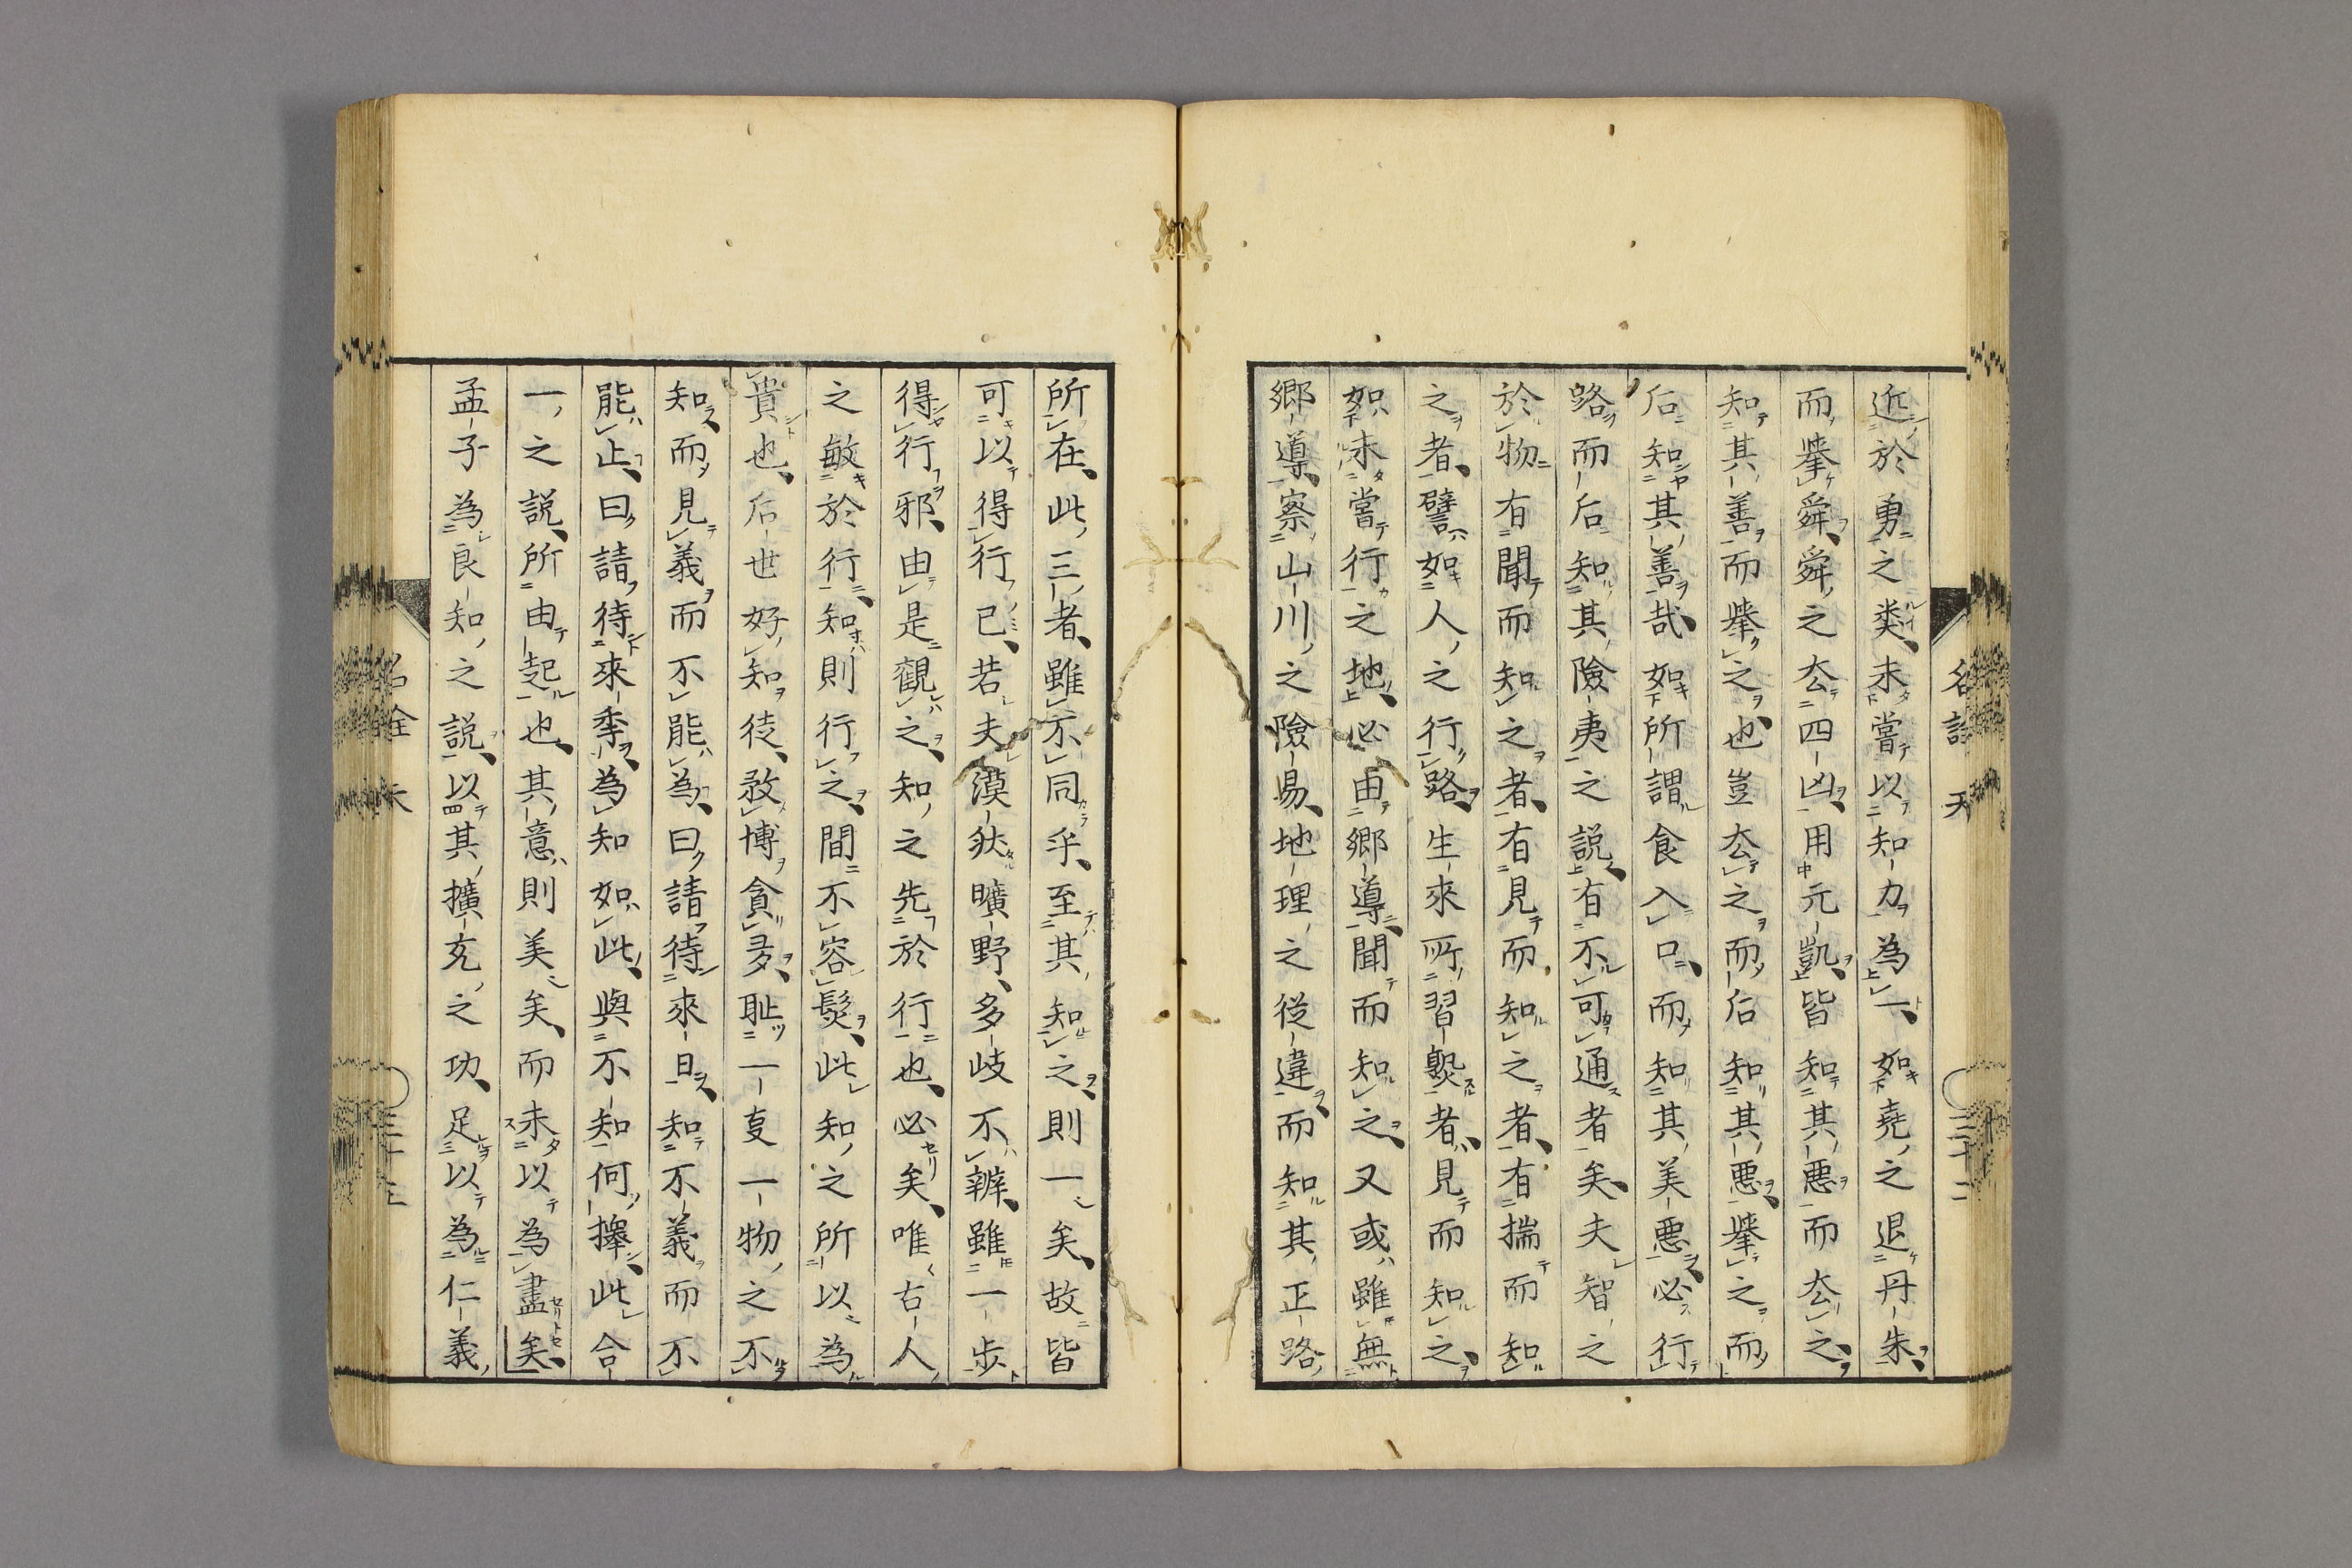 近於勇之類未嘗以知力為一如堯之退丹朱
而擧舜舜之厺四凶用元凱皆知其惡而厺之
知其善而擧之也豈厺之而后知其惡擧之而
后知其善哉如所謂食入口而知其美惡必行
路而后知其險夷之説有不可通者矣夫智之
於物有聞而知之者有見而知之者有揣而知
之者譬如人之行路生來所習熟者見而知之
如未嘗行之地必由郷導聞而知之又或雖無
郷導察山川之險易地理之從違而知其正路
所在此三者雖不同乎至其知之則一矣故皆
可以得行已若夫漠然曠野多岐不辨雖一步
得行邪由是觀之知之先於行也必矣唯古人
之敏於行知則行之間不容髮此知之所以為
貴也后世好知徒敎博貪多恥一事一物之不
知而見義而不能為曰請待來日知不義而不
能止曰請待來季為知如此與不知何擇此合
一之説所由起也其意則美矣而未以為盡矣
孟子為良知之説以其擴充之功足以為仁義
名詮 天
三十二